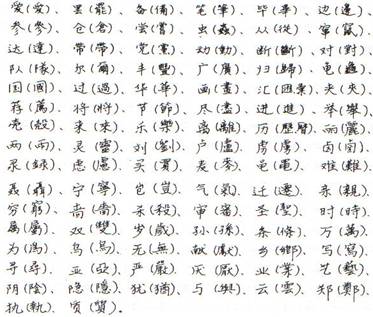 爱(愛)、罢(罷)、备(備)、笔(筆)、毕(畢)、边(邊)、
参(參)、仓(倉)、尝(嘗)、虫(蟲)、从(從)、窜(竄)、
达(達)、带(帶)、党(黨)、动(動)、断(斷)、对(對)、
队(隊)、尔(爾)、丰(豐)、广(廣)、归(歸)、龟(龜)、
国(國)、过(過)、华(華)、画(畫)、汇(匯彙)、夹(夾)、
荐(薦)、将(將)、节(節)、尽(盡)、进(進)、举(舉)、
壳(殼)、来(來)、乐(樂)、离(離)、历(歷曆)、丽(麗)、
两(兩)、灵(靈)、刘(劉)、卢(盧)、虏(虜)、卤(鹵)、
录(録)、虑(慮)、买(買)、麦(麥)、黾(黽)、难(難)、
聂(聶)、宁(寧)、岂(豈)、气(氣)、迁(遷)、亲(親)、
穷(窮)、啬(嗇)、杀(殺)、审(審)、圣(聖)、时(時)、
属(屬)、双(雙)、岁(歲)、孙(孫)、条(條)、万(萬)、
为(爲)、乌(烏)、无(無)、献(獻)、乡(鄉)、写(寫)、
寻(尋)、亚(亞)、严(嚴)、厌(厭)、业(業)、艺(藝)、
阴(陰)、隐(隱)、犹(猶)、与(與)、云(雲)、郑(鄭)、
执(執)、质(質)。